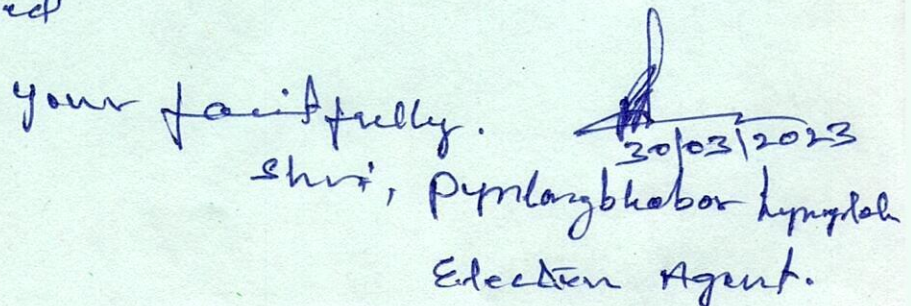 Your faitfully.
30/03/2023
Shri, Pynlangbhabor Lyngdoh
Election Agent.